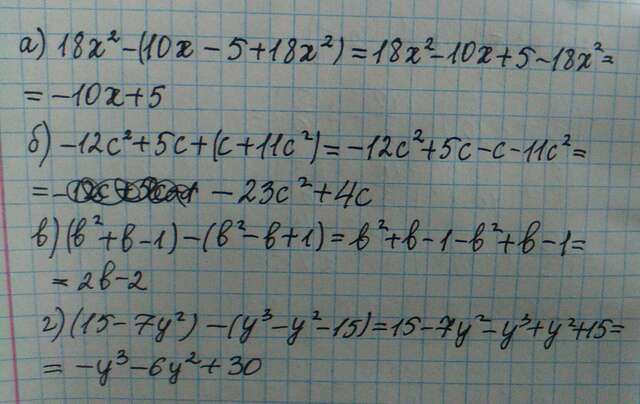 а) 18x² – (10x – 5 + 18x²) = 18x² – 10x + 5 – 18x² =
= – 10x + 5
б) – 12c² + 5c + (c + 11c²) = – 12c² + 5c – c – 11c² =
= – 23c² + 4c
в) (b² + b – 1) – (b² – b + 1) = b² + b – 1 – b² + b – 1 =
= 2b – 2
г) (15 – 7y²) – (y³ – y² – 15) = 15 – 7y² – y³ + y² + 15 =
= – y³ – 6y² + 30